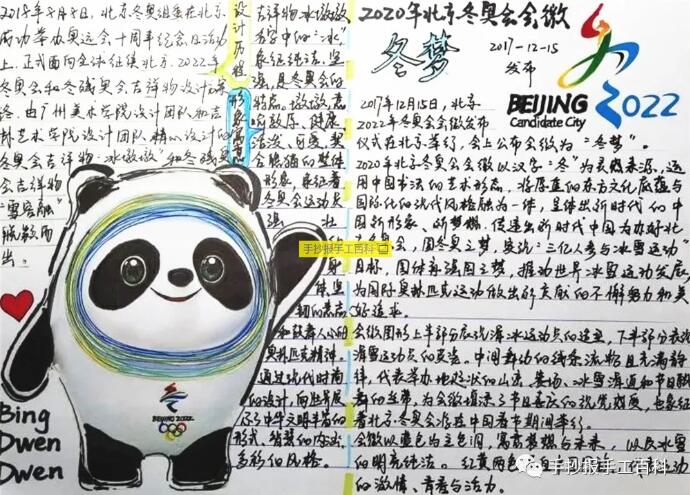 2018年8月8日，北京冬奥组委在北京
成功举办奥运会十周年纪念日活动
上，正式面向全球征集北京2022年
冬奥会和冬残奥会吉祥物设计
由广州美术学院设计团队和吉
林艺术学院设计团队精心设计的
冬奥会吉祥物"冰墩墩"和冬残奥
会吉祥物
"雪容融"
脱颖而
出。
设计历程
形象寓意
吉祥物冰墩墩
字中的"冰"
象征纯洁、坚
强，是冬奥会的
特点。墩墩意
喻敦厚、健康
活泼、可爱，契
合熊猫的整体
形象，象征着
冬奥会运动员
强壮
身
体坚
韧的意志
和鼓舞人心的
奥林匹克精神。
通过现代时尚
的设计，向世界展
示了中华文明丰富的
形式、精髓的内涵
多彩的风格。
Bing
Dwen
Dwen
BEIJING 2022
2020年北京冬奥会会徽
冬梦
2017-12-15
发布
BEIJING
Candidate City
2022
2017年12月15日，北京
2022年冬奥会会徽发布
仪式在北京举行，会上公布会徽为"冬梦"。
2020年北京冬奥会会徽以汉字"冬"为灵感来源，运
用中国书法的艺术形态，将厚重的东方文化底蕴与
国际化的现代风格融为一体，呈现出新时代的中
国新形象、新梦想，传递出新时代中国为办好北
冬奥会，圆冬奥之梦，实现"三亿人参与冰雪运动"
目标，圆体育强国之梦，推动世界冰雪运动发展
为国际奥林匹克运动做出新贡献的不懈努力和美
好追求。
会徽图形上半部分展现滑冰运动员的造型，下半部分表现
滑雪运动员的英姿。中间舞动的线条流畅且充满韵
律，代表举办地起伏的山峦、赛场、冰雪滑道和节日飘
舞的丝带，为会徽增添了节日喜庆的视觉感度，也象征
着北京冬奥会将在中国春节期间举行。
会徽以蓝色为主色调，寓意梦想与未来，以及冰雪
的明亮纯洁。红黄两色
的激情、青春与活力。
手抄报手工百科
手抄报手工百科